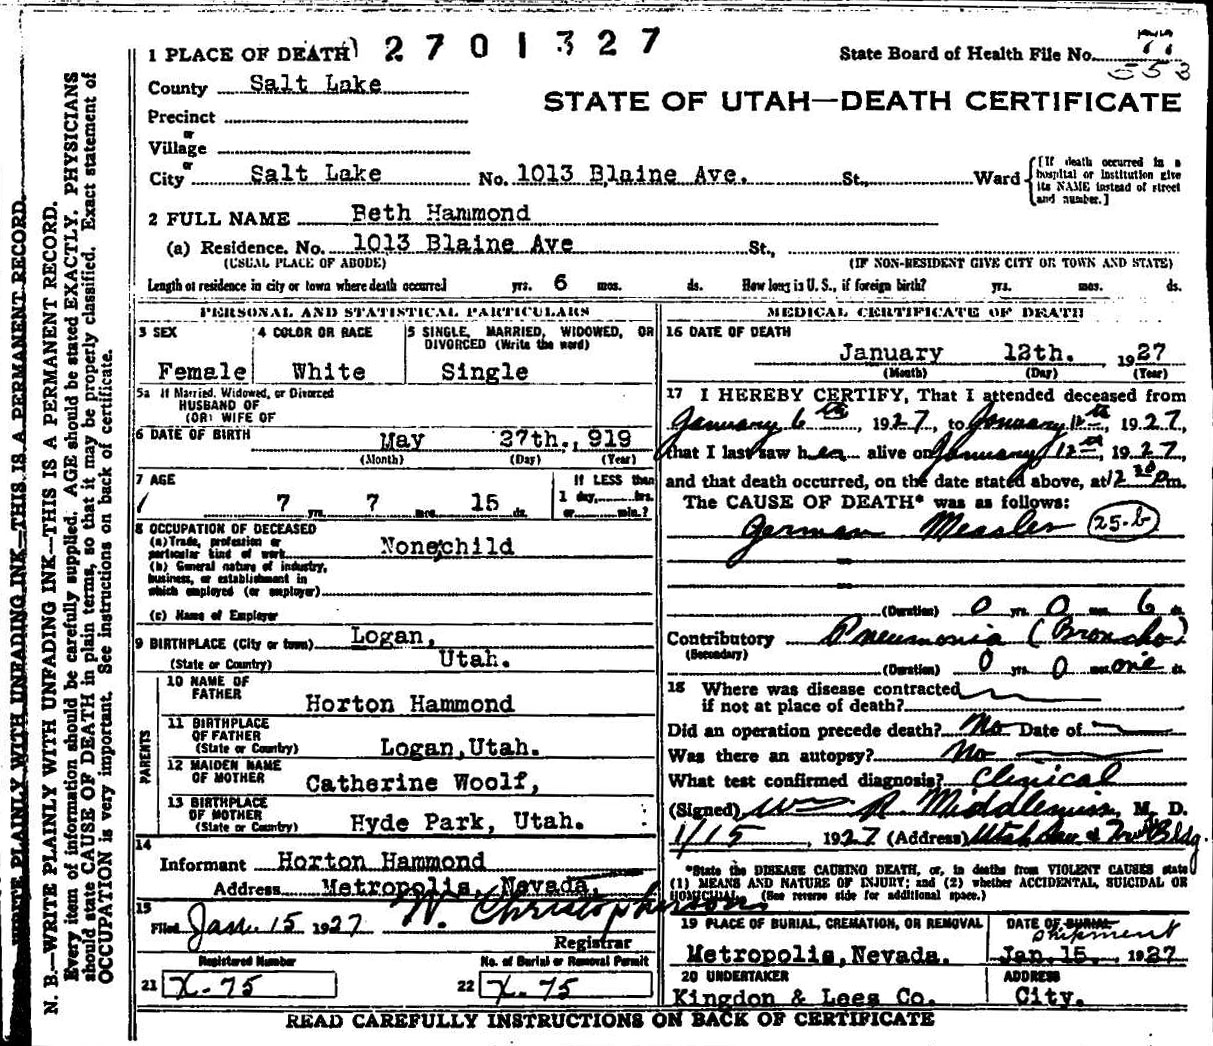 1 PLACE OF DEATH 2 7 0 1 3 2 7
State Board of Health File No. 77
553
County Salt Lake
STATE OF UTAH—DEATH CERTIFICATE
Precinct
or
Village
or
City Salt Lake No. 1013 Blaine Ave. St., Ward
[If death occurred in a hospital or institution give its NAME instead of street and number.]
2 FULL NAME Beth Hammond
(a) Residence. No. 1013 Blaine Ave St.,
(USUAL PLACE OF ABODE) (IF NON-RESIDENT GIVE CITY OR TOWN AND STATE)
Length of residence in city or town where death occurred yrs. 6 mos. ds. How long in U. S., if foreign birth? yrs. mos. ds.
PERSONAL AND STATISTICAL PARTICULARS
3 SEX 4 COLOR OR RACE 5 SINGLE, MARRIED, WIDOWED, OR
DIVORCED (Write the word)
Female White Single
5a If Married, Widowed, or Divorced
HUSBAND OF
(OR) WIFE OF
6 DATE OF BIRTH May 27th., 919
(Month) (Day) (Year)
7 AGE If LESS than
1 day, hrs.
or min.?
7 yrs. 7 mos. 15 ds.
8 OCCUPATION OF DECEASED
(a) Trade, profession or
particular kind of work None;child
(b) General nature of industry,
business, or establishment in
which employed (or employer)
(c) Name of Employer
9 BIRTHPLACE (City or town) Logan,
(State or Country) Utah.
PARENTS
10 NAME OF
FATHER Horton Hammond
11 BIRTHPLACE
OF FATHER
(State or Country) Logan,Utah.
12 MAIDEN NAME
OF MOTHER Catherine Woolf,
13 BIRTHPLACE
OF MOTHER
(State or Country) Hyde Park, Utah.
14
Informant Horton Hammond
Address Metropolis, Nevada.
15
Filed Jan. 15 1927 W. Christopherson
Registrar
Registered Number No. of Burial or Removal Permit
21 X-75 22 X-75
MEDICAL CERTIFICATE OF DEATH
16 DATE OF DEATH
January 12th. 1927
(Month) (Day) (Year)
17 I HEREBY CERTIFY, That I attended deceased from
January 6th, 1927, to January 12th, 1927,
that I last saw her alive on January 12th, 1927,
and that death occurred, on the date stated above, at 12 30 Pm.
The CAUSE OF DEATH* was as follows:
German Measles (25-b)
(Duration) 0 yrs. 0 mos. 6 ds.
Contributory Pneumonia (Broncho)
(Secondary)
(Duration) 0 yrs. 0 mos. one ds.
18 Where was disease contracted
if not at place of death?
Did an operation precede death? No Date of
Was there an autopsy? No
What test confirmed diagnosis? Clinical
(Signed) Wm R. Middlemiss, M. D.
1/15 1927 (Address) Utah Sav & Trust Bldg.
*State the DISEASE CAUSING DEATH, or, in deaths from VIOLENT CAUSES state
(1) MEANS AND NATURE OF INJURY; and (2) whether ACCIDENTAL, SUICIDAL OR
HOMICIDAL. (See reverse side for additional space.)
19 PLACE OF BURIAL, CREMATION, OR REMOVAL DATE OF BURIAL
Shipment
Metropolis,Nevada. Jan.15. 1927
20 UNDERTAKER ADDRESS
Kingdon & Lees Co. City.
READ CAREFULLY INSTRUCTIONS ON BACK OF CERTIFICATE
WRITE PLAINLY WITH UNFADING INK—THIS IS A PERMANENT RECORD.
N. B.—WRITE PLAINLY WITH UNFADING INK—THIS IS A PERMANENT RECORD.
Every item of information should be carefully supplied. AGE should be stated EXACTLY. PHYSICIANS
should state CAUSE OF DEATH in plain terms, so that it may be properly classified. Exact statement of
OCCUPATION is very important. See instructions on back of certificate.